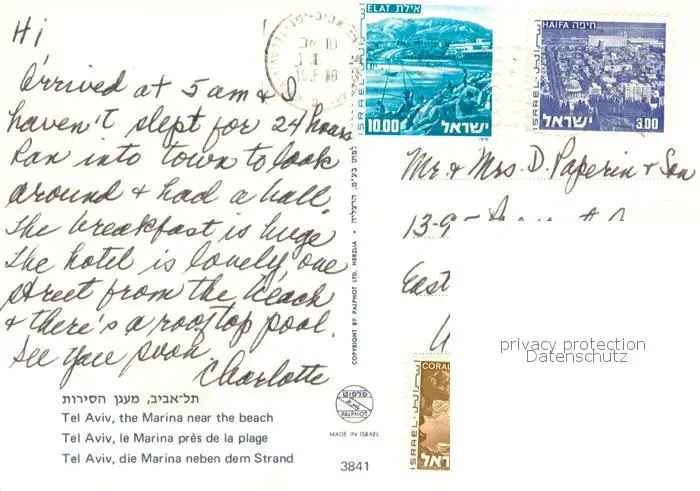 Hi
Arrived at 5 am & I
haven't slept for 24 hours
Ran into town to look
around & had a ball.
The breakfast is huge
The hotel is lovely, one
street from the beach
& there's a rooftop pool.
See you soon.
Charlotte
תל-אביב, מעגן הסירות
Tel Aviv, the Marina near the beach
Tel Aviv, le Marina près de la plage
Tel Aviv, die Marina neben dem Strand
PALPHOT
MADE IN ISRAEL
3841
COPYRIGHT BY PALPHOT LTD. HERZLIA • הרצליה
ELAT אילת
10.00 ישראל
ISRAEL
HAIFA חיפה
ISRAEL
ישראל 3.00
Mr. & Mrs. D. Paperin & Son
13-9
East
CORAL
privacy protection
Datenschutz